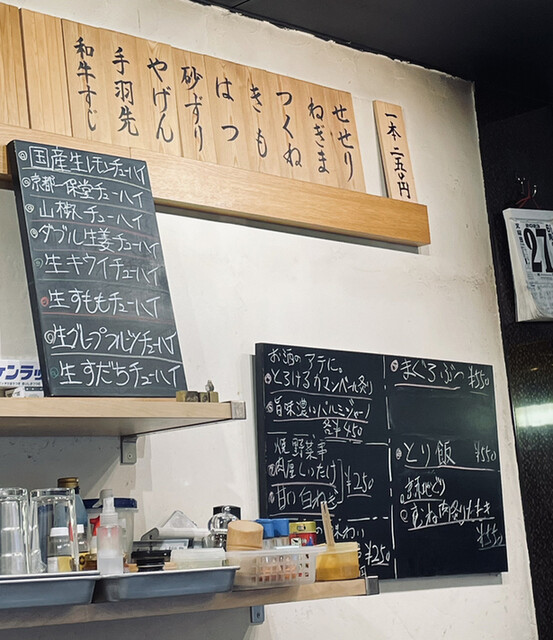 一本 二五〇円
せせり
ねぎま
つくね
きも
はつ
砂ずり
やげん
手羽先
和牛すじ
国産生レモンチューハイ
京都一保堂チューハイ
山椒チューハイ
ダブル生姜チューハイ
生キウイチューハイ
生すももチューハイ
生グレープフルーツチューハイ
生すだちチューハイ
お酒のアテに。
とろけるカマンベール炙り
旨味濃いパルミジャーノ
各¥450
焼野菜
肉厚しいたけ
甘い白ねぎ
¥250
¥250
まぐろぶつ ¥550
とり飯 ¥550
むね肉炙りたたき
¥550
27